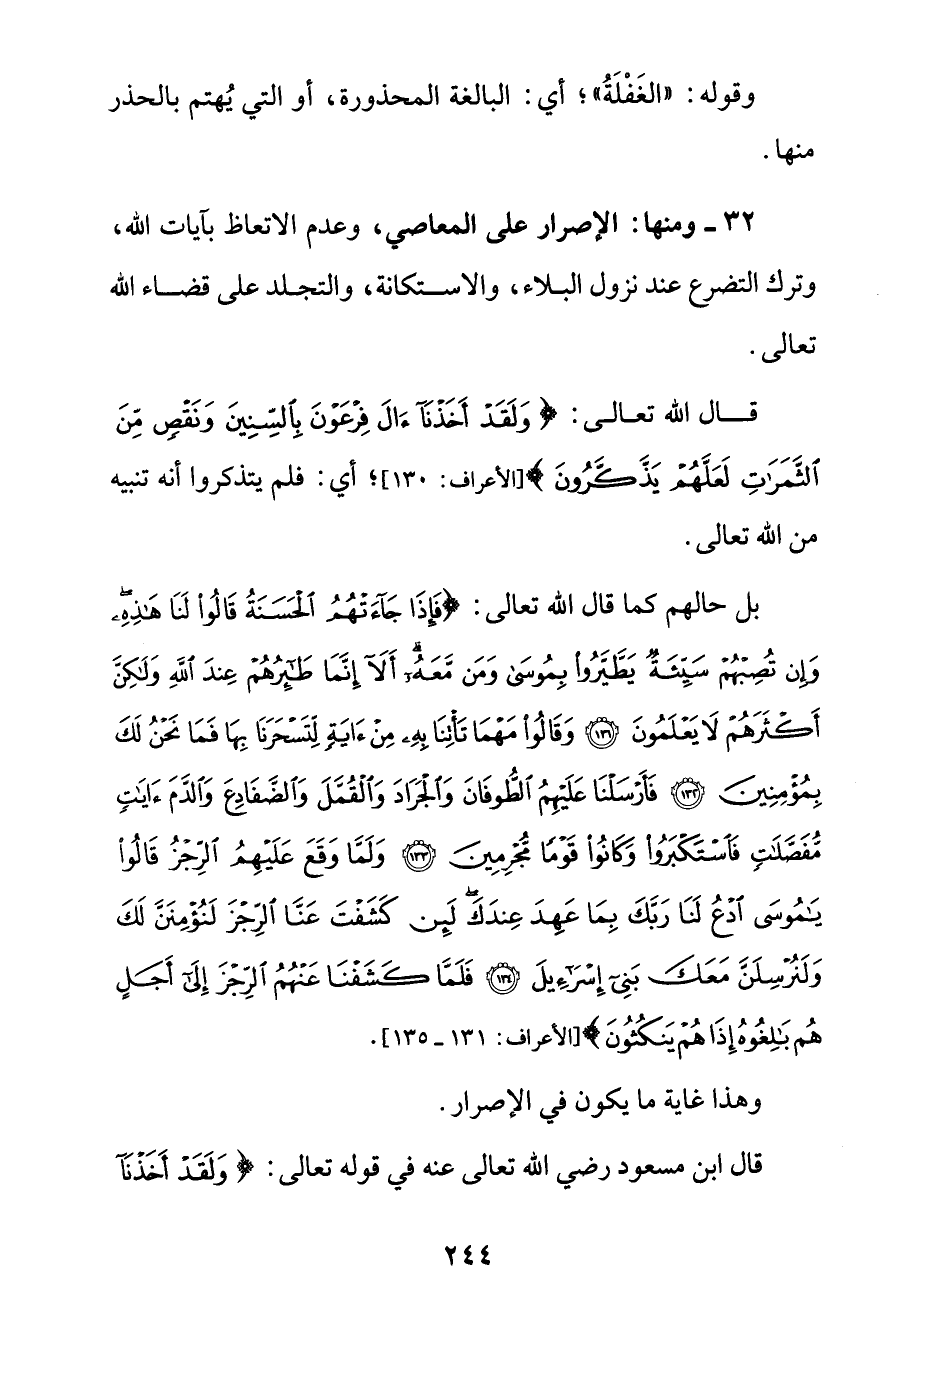 وقوله: «الغَفْلَةُ»؛ أي: البالغة المحذورة، أو التي يُهتم بالحذر
منها.
٣٢ ـ ومنها: الإصرار على المعاصي، وعدم الاتعاظ بآيات الله،
وترك التضرع عند نزول البلاء، والاستكانة، والتجلد على قضاء الله
تعالى.
قال الله تعالى: ﴿وَلَقَدْ أَخَذْنَآ ءَالَ فِرْعَوْنَ بِٱلسِّنِينَ وَنَقْصٍ مِّنَ
ٱلثَّمَرَٰتِ لَعَلَّهُمْ يَذَّكَّرُونَ﴾ [الأعراف: ١٣٠]؛ أي: فلم يتذكروا أنه تنبيه
من الله تعالى.
بل حالهم كما قال الله تعالى: ﴿فَإِذَا جَآءَتْهُمُ ٱلْحَسَنَةُ قَالُوا۟ لَنَا هَٰذِهِۦ ۖ
وَإِن تُصِبْهُمْ سَيِّئَةٌ يَطَّيَّرُوا۟ بِمُوسَىٰ وَمَن مَّعَهُۥٓ ۗ أَلَآ إِنَّمَا طَٰٓئِرُهُمْ عِندَ ٱللَّهِ وَلَٰكِنَّ
أَكْثَرَهُمْ لَا يَعْلَمُونَ ١٣١ وَقَالُوا۟ مَهْمَا تَأْتِنَا بِهِۦ مِنْ ءَايَةٍ لِّتَسْحَرَنَا بِهَا فَمَا نَحْنُ لَكَ
بِمُؤْمِنِينَ ١٣٢ فَأَرْسَلْنَا عَلَيْهِمُ ٱلطُّوفَانَ وَٱلْجَرَادَ وَٱلْقُمَّلَ وَٱلضَّفَادِعَ وَٱلدَّمَ ءَايَٰتٍ
مُّفَصَّلَٰتٍ فَٱسْتَكْبَرُوا۟ وَكَانُوا۟ قَوْمًا مُّجْرِمِينَ ١٣٣ وَلَمَّا وَقَعَ عَلَيْهِمُ ٱلرِّجْزُ قَالُوا۟
يَٰمُوسَى ٱدْعُ لَنَا رَبَّكَ بِمَا عَهِدَ عِندَكَ ۖ لَئِن كَشَفْتَ عَنَّا ٱلرِّجْزَ لَنُؤْمِنَنَّ لَكَ
وَلَنُرْسِلَنَّ مَعَكَ بَنِىٓ إِسْرَٰٓءِيلَ ١٣٤ فَلَمَّا كَشَفْنَا عَنْهُمُ ٱلرِّجْزَ إِلَىٰٓ أَجَلٍ
هُم بَٰلِغُوهُ إِذَا هُمْ يَنكُثُونَ﴾ [الأعراف: ١٣١ ـ ١٣٥].
وهذا غاية ما يكون في الإصرار.
قال ابن مسعود رضي الله تعالى عنه في قوله تعالى: ﴿وَلَقَدْ أَخَذْنَآ
٢٤٤